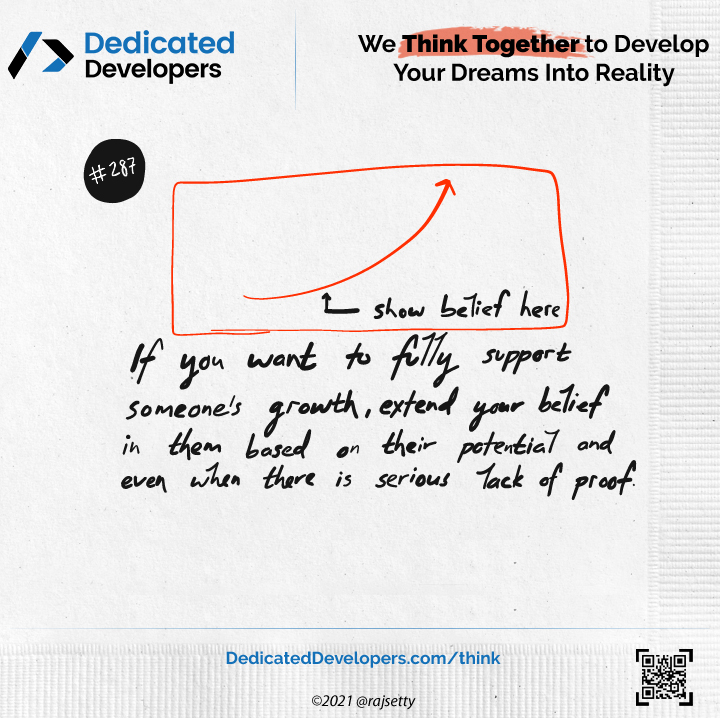 Dedicated
Developers
We Think Together to Develop
Your Dreams Into Reality
#287
show belief here
If you want to fully support
someone's growth, extend your belief
in them based on their potential and
even when there is serious lack of proof.
DedicatedDevelopers.com/think
©2021 @rajsetty